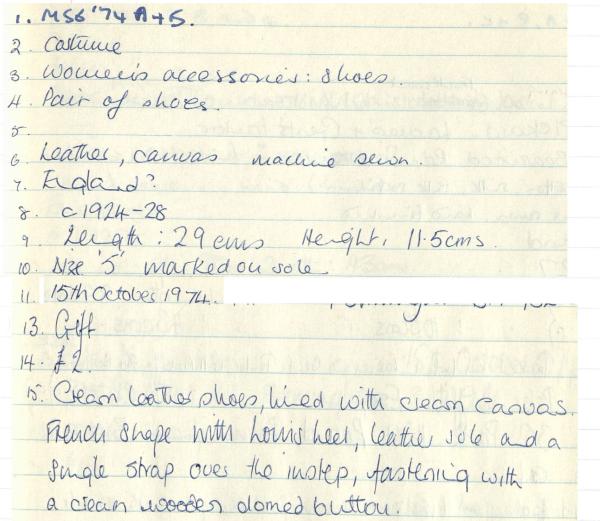 1. MSS '74 A+S.
2. Costume
3. Women's accessories: shoes.
4. Pair of shoes.
5.
6. Leather, canvas machine sewn.
7. England?
8. c1924-28
9. Length: 29 cms Height, 11.5cms.
10. Size '5' marked on sole
11. 15th October 1974.
13. Gift
14. £2.
15. Cream leather shoes, lined with cream canvas.
French shape with louis heel, leather sole and a
single strap over the instep, fastening with
a cream wooden domed button.